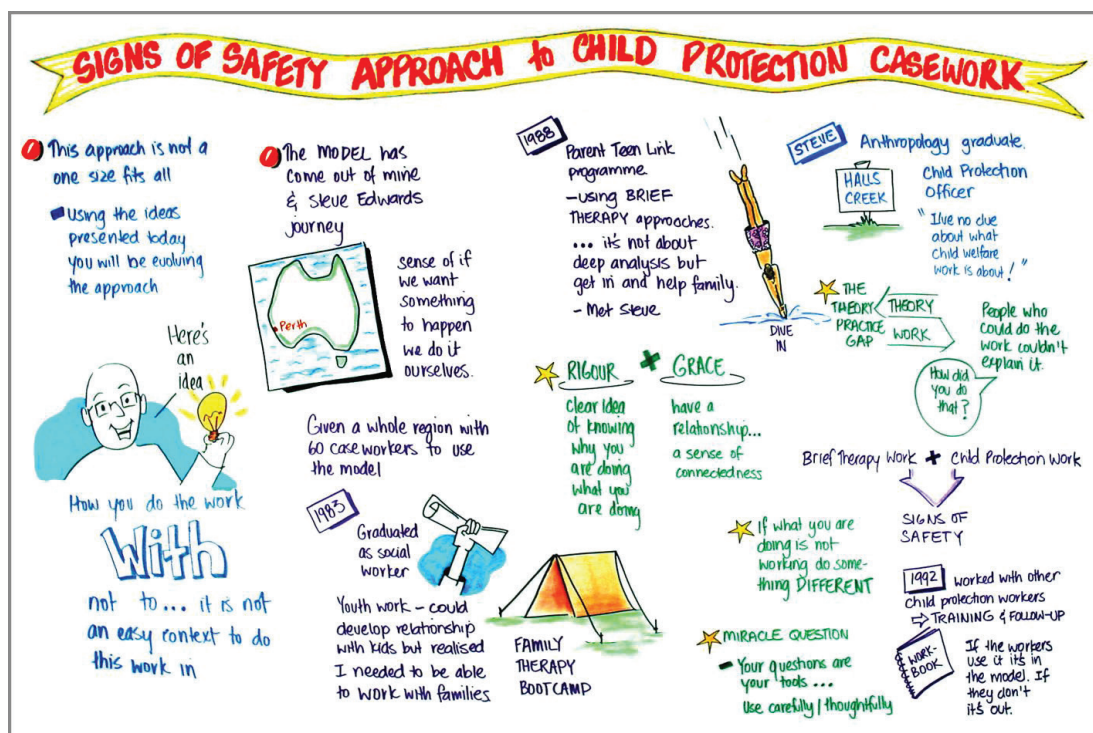 SIGNS OF SAFETY APPROACH to CHILD PROTECTION CASEWORK
This approach is not a
one size fits all
using the ideas
presented today
you will be evolving
the approach
Here's
an
idea
How you do the work
With
not to... it is not
an easy context to do
this work in
The MODEL has
come out of mine
& steve Edwards
journey
Perth
sense of if
we want
something
to happen
we do it
ourselves.
Given a whole region with
60 case workers to use
the model
1983
Graduated
as social
worker
Youth work - could
develop relationship
with kids but realised
I needed to be able
to work with families
FAMILY
THERAPY
BOOTCAMP
1988
Parent Teen Link
programme
- using BRIEF
THERAPY approaches.
... it's not about
deep analysis but
get in and help family.
- Met Steve
DIVE
IN
RIGOUR + GRACE
clear idea
of knowing
why you
are doing
what you
are doing
have a
relationship...
a sense of
connectedness
STEVE
Anthropology graduate.
HALLS
CREEK
Child Protection
Officer
"I've no clue
about what
child welfare
work is about!"
THE
THEORY
PRACTICE
GAP
THEORY
WORK
People who
could do the
work couldn't
explain it.
How did
you do
that?
Brief Therapy Work + Child Protection Work
SIGNS OF
SAFETY
If what you are
doing is not
working do some-
thing DIFFERENT
MIRACLE QUESTION
- Your questions are
your tools...
use carefully/thoughtfully
1992
worked with other
child protection workers
⇨ TRAINING & FOLLOW-UP
WORK-
BOOK
If the workers
use it it's in
the model. If
they don't
it's out.